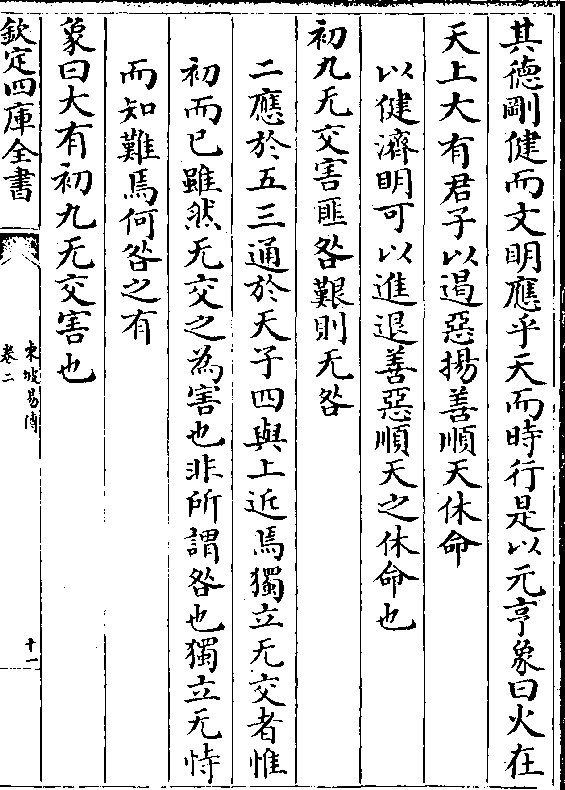 其德剛健而文明應乎天而時行是以元亨象曰火在
天上大有君子以遏惡揚善順天休命
以健濟明可以進退善惡順天之休命也
初九无交害匪咎艱則无咎
二應於五三通於天子四與上近焉獨立无交者惟
初而已雖然无交之為害也非所謂咎也獨立无恃
而知難焉何咎之有
象曰大有初九无交害也
欽定四庫全書
東坡易傳
卷二
十一